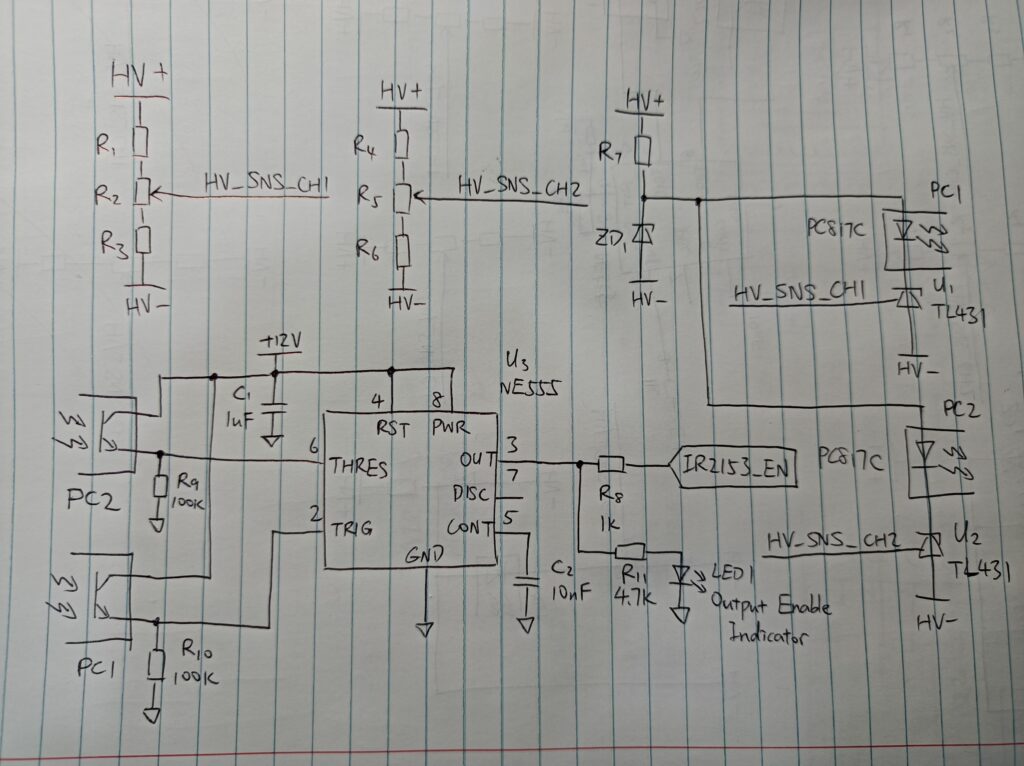 HV+
R1
R2
R3
HV-
HV_SNS_CH1
HV+
R4
R5
R6
HV-
HV_SNS_CH2
HV+
R7
ZD1
HV-
PC1
PC817C
HV_SNS_CH1
U1
TL431
HV-
PC2
PC817C
HV_SNS_CH2
U2
TL431
HV-
+12V
C1
1uF
U3
NE555
4
8
RST
PWR
6
THRES
2
TRIG
OUT
3
7
DISC
CONT
5
GND
PC2
R9
100K
PC1
R10
100K
C2
10nF
R8
1K
IR2153_EN
R11
4.7K
LED1
Output Enable
Indicator